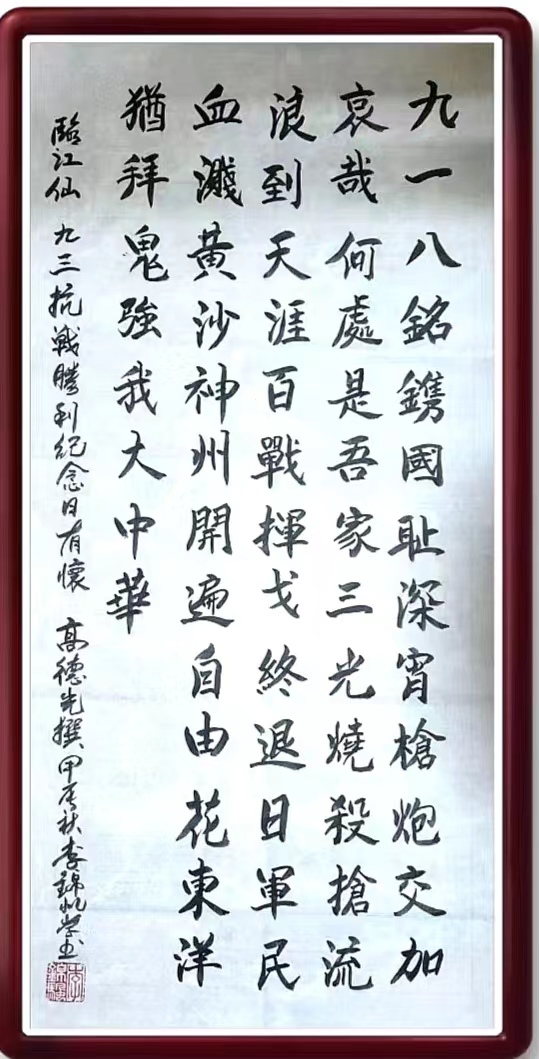 九一八銘鐫國耻深宵槍炮交加
哀哉何處是吾家三光燒殺搶流
浪到天涯百戰揮戈終退日軍民
血濺黃沙神州開遍自由花東洋
猶拜鬼強我大中華
臨江仙 九三抗戰勝利紀念日有懷 高德先撰 甲辰秋李錦帆學書